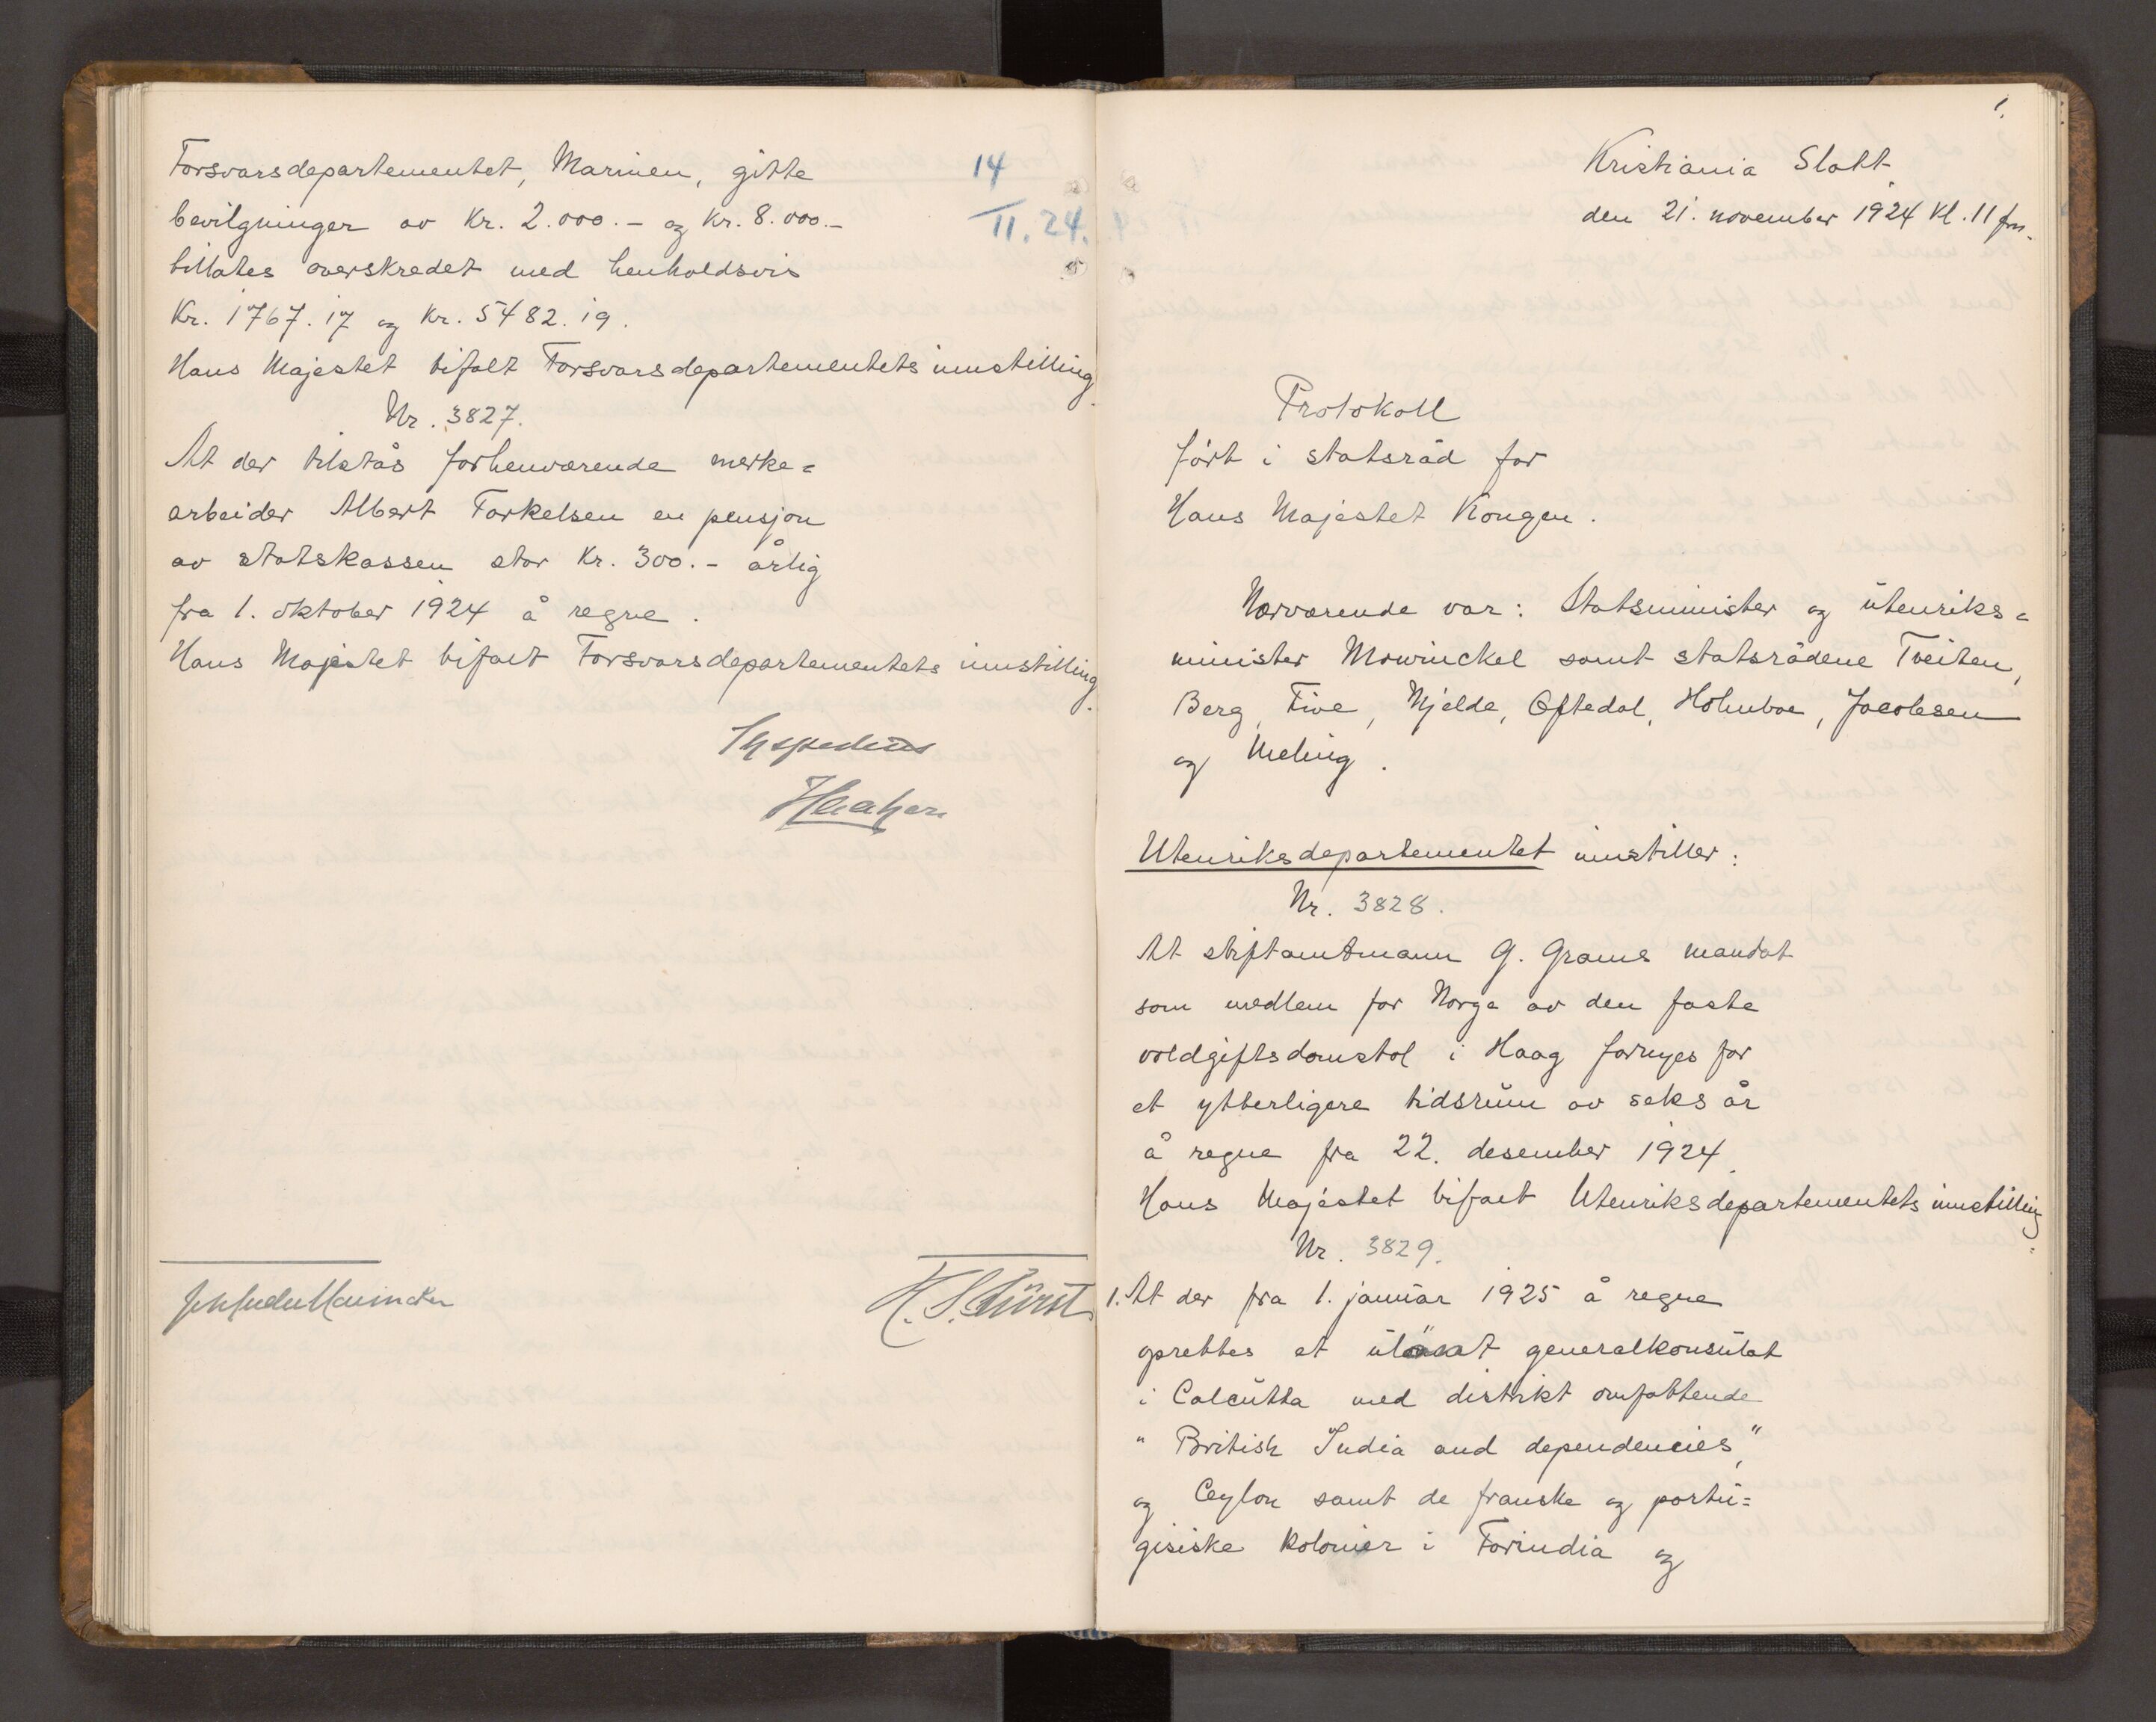 Forsvarsdepartementet, Marinen, gitte
bevilgninger av Kr. 2.000.- og Kr. 8.000.-
tillates overskredet med henholdsvis
Kr. 1767.17 og Kr. 5482.19.
Hans Majestet bifalt Forsvarsdepartementets innstilling.
Nr. 3827.
At der tilstås forhenværende merke=
arbeider Albert Torkelsen en pensjon
av statskassen stor Kr. 300.- årlig
fra 1. oktober 1924 å regne.
Hans Majestet bifalt Forsvarsdepartementets innstilling.
Haakon
H. S. Fürst
14
11.24.
1.
Kristiania Slott
den 21. november 1924 kl. 11 fm.
Protokoll
ført i statsråd for
Hans Majestet Kongen.
Nærværende var: Statsminister og ŭtenriks=
minister Mowinckel samt statsrådene Tveiten,
Berg, Five, Mjelde, Oftedal, Holmboe, Jacobsen
og Meling.
Utenriksdepartementet innstiller:
Nr. 3828.
At stiftamtmann G. Grams mandat
som medlem for Norge av den faste
voldgiftsdomstol i Haag fornyes for
et ytterligere tidsrŭm av seks år
å regne fra 22. desember 1924.
Hans Majestet bifalt Utenriksdepartementets innstilling.
Nr. 3829.
1. At der fra 1. janŭar 1925 å regne
oprettes et ŭlønnet generalkonsŭlat
i Calcŭtta med distrikt omfattende
"British India and dependencies,"
og Ceylon samt de franske og portŭ=
gisiske kolonier i Forindia og